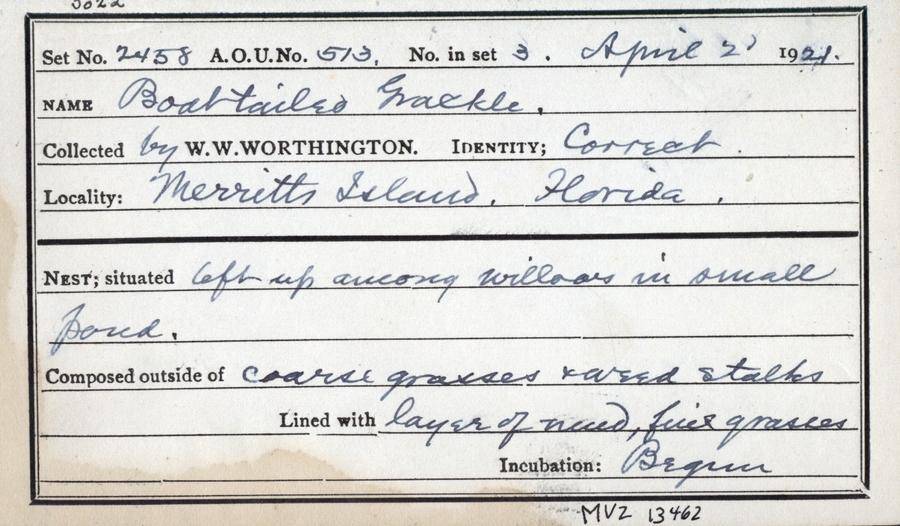 Set No. 2458 A.O.U.No. 513, No. in set 3. April 2, 1921.
NAME Boat tailed Grackle.
Collected by W.W.WORTHINGTON. IDENTITY; Correct.
Locality: Merritts Island, Florida.
NEST; situated 6 ft up among willows in small
pond.
Composed outside of coarse grasses & weed stalks
Lined with layer of mud, fine grasses
Incubation: Begun
MVZ 13462